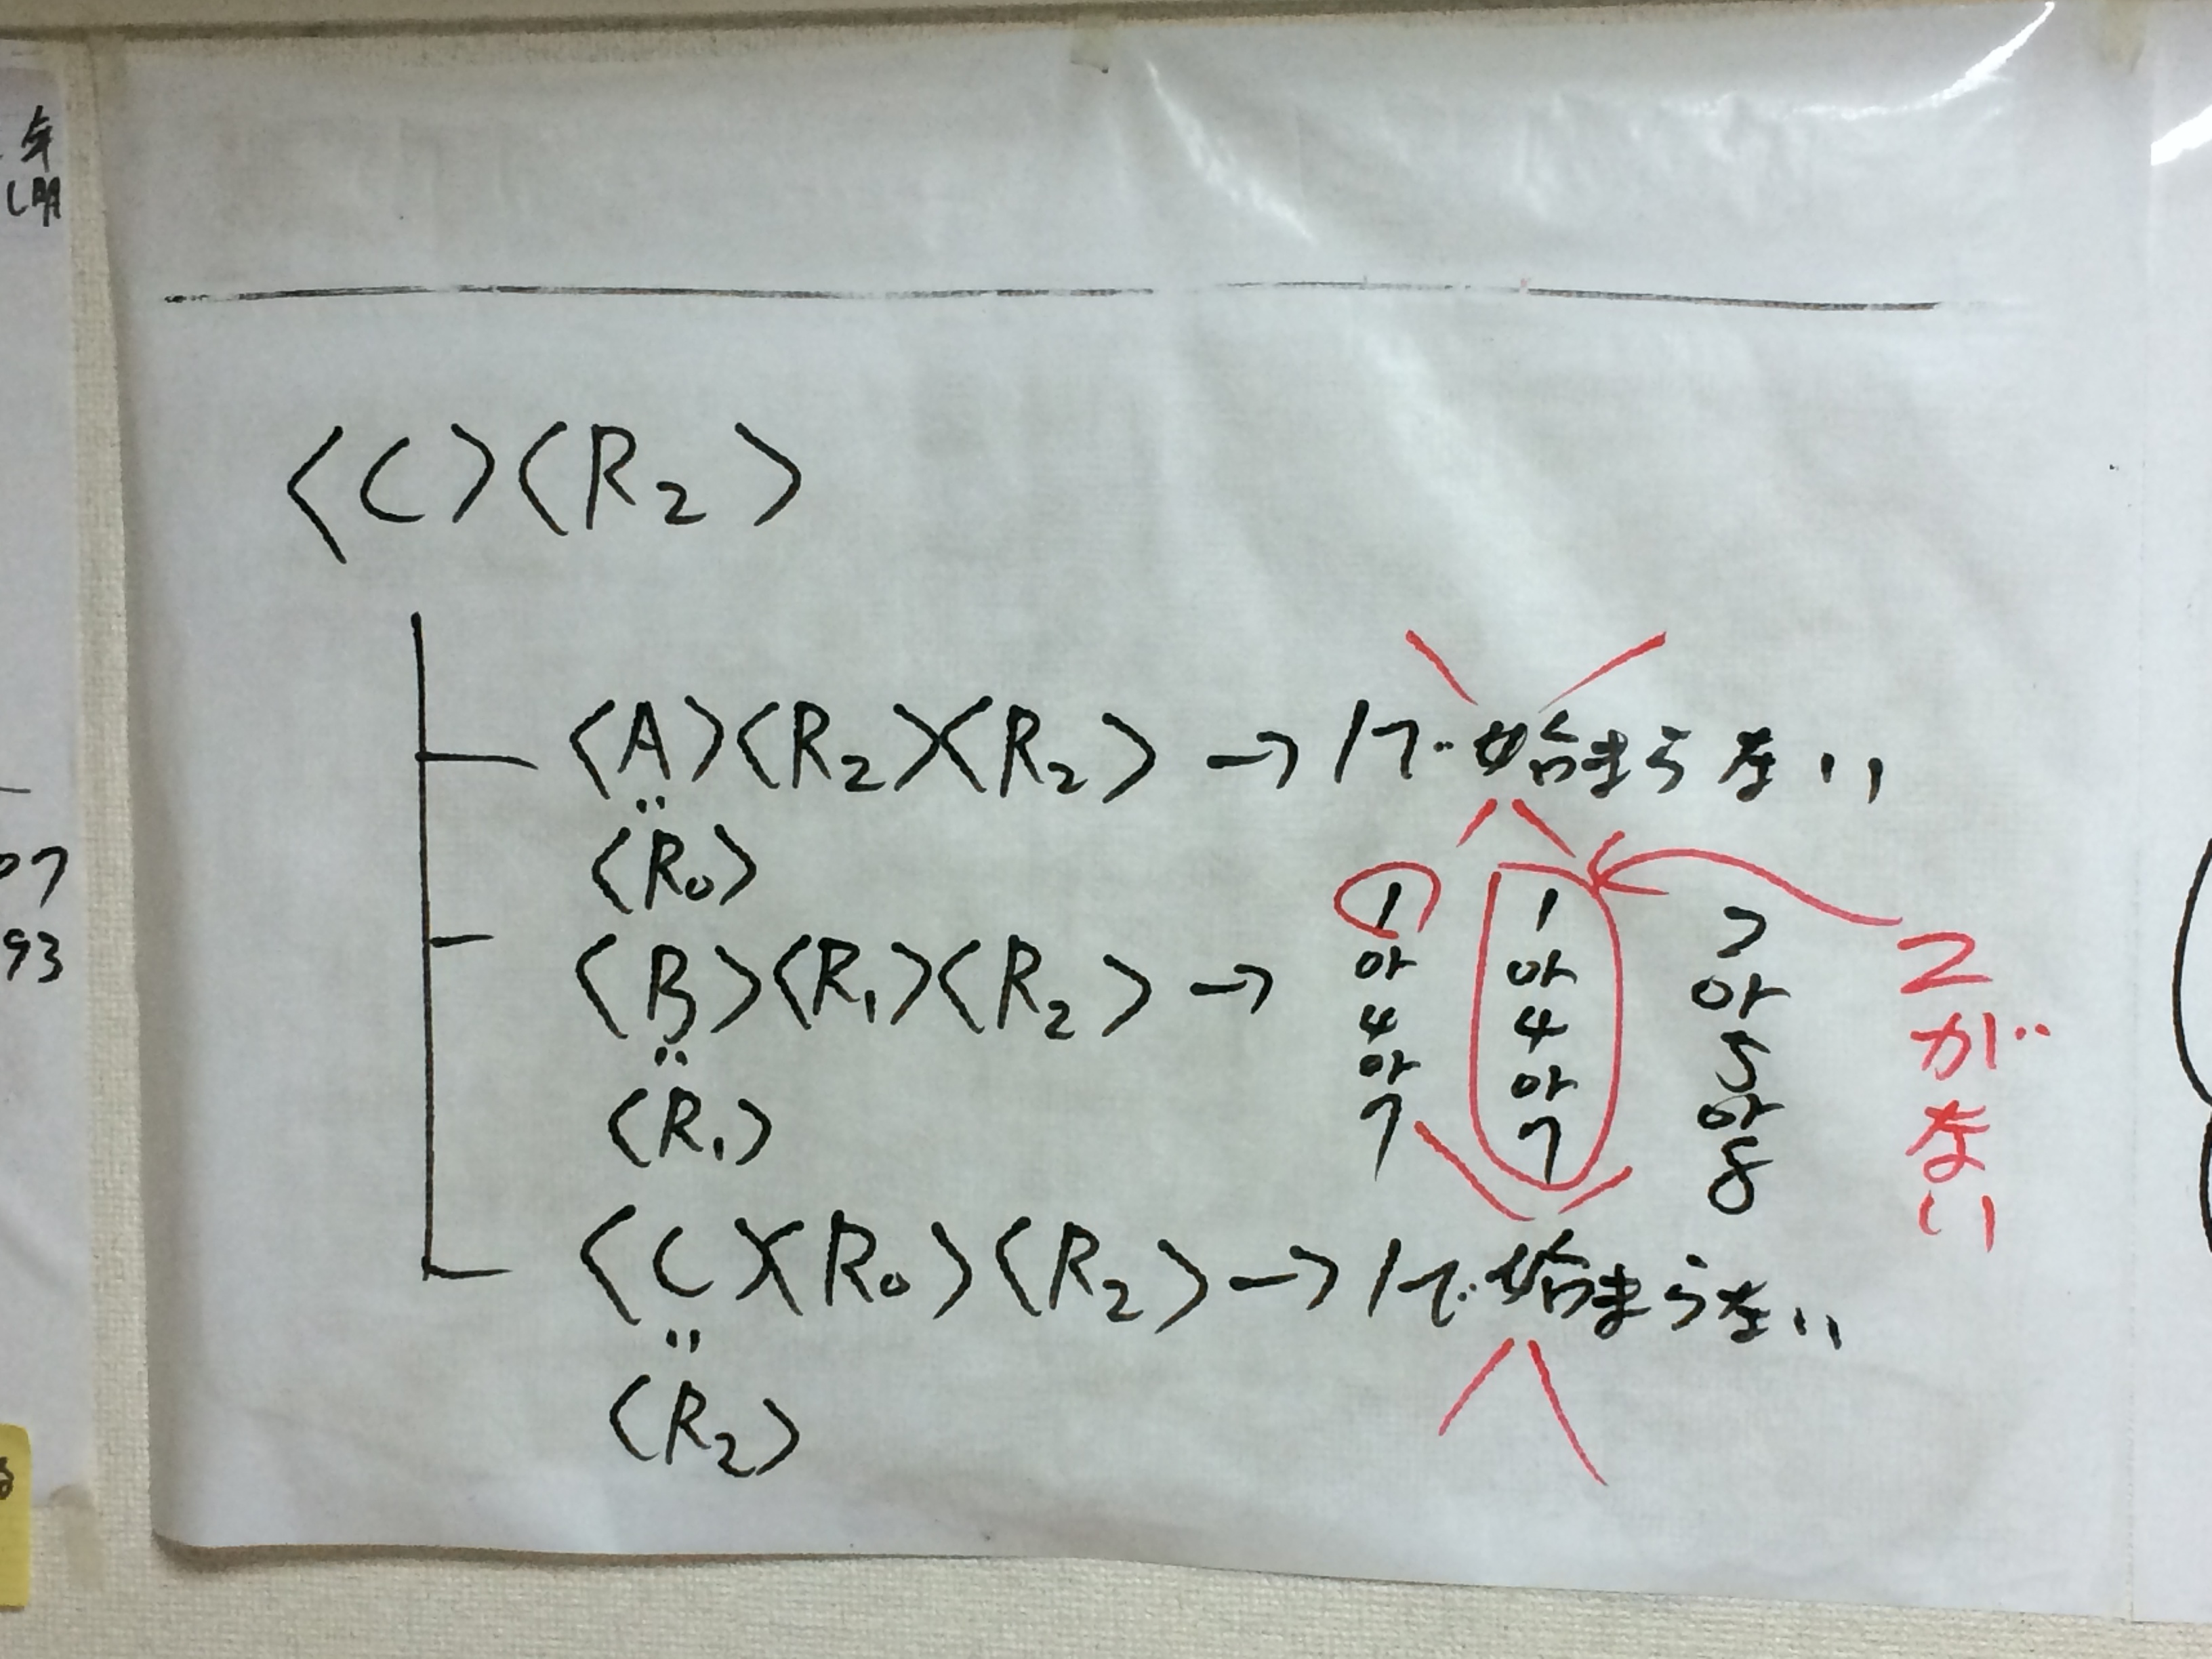 年
し明
07
93
〈C〉〈R₂〉
〈A〉〈R₂〉〈R₂〉→1で始まらない
‥
〈R₀〉
〈B〉〈R₁〉〈R₂〉→
‥
〈R₁〉
1
or
4
or
7
1
or
4
or
7
2
or
5
or
8
2がない
〈C〉〈R₀〉〈R₂〉→1で始まらない
‥
〈R₂〉